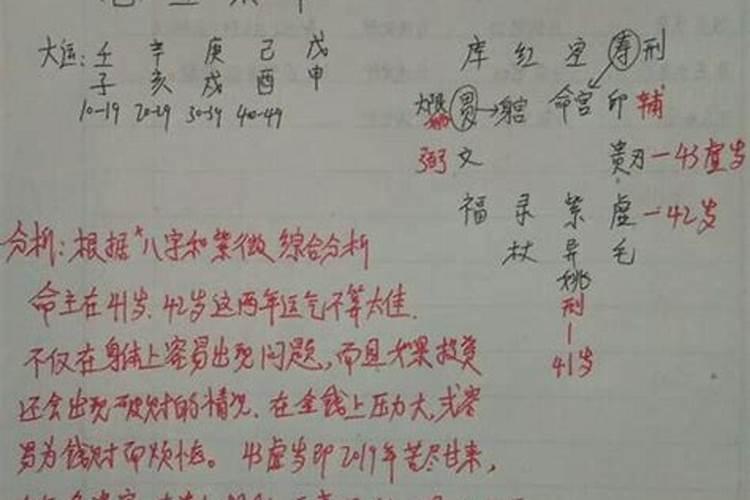 大运: 壬 辛 庚 己 戊
子 亥 戌 酉 申
10-19 20-29 30-39 40-49
库 红 空 寿 刑
大限 昌→身宫 命宫 印 辅
弼 文 贵 刃-43虚岁
福 录 紫 虚-42岁
杖 异 毛
姚
刑
41岁
分析: 根据"八字和紫微综合分析
命主在41岁、42岁这两年运气不算太佳.
不仅在身体上容易出现问题,而且如果投资
还会出现破财的情况. 在金钱上压力大,或容
易为钱财而烦恼。 43虚岁即2019年苦尽甘来,